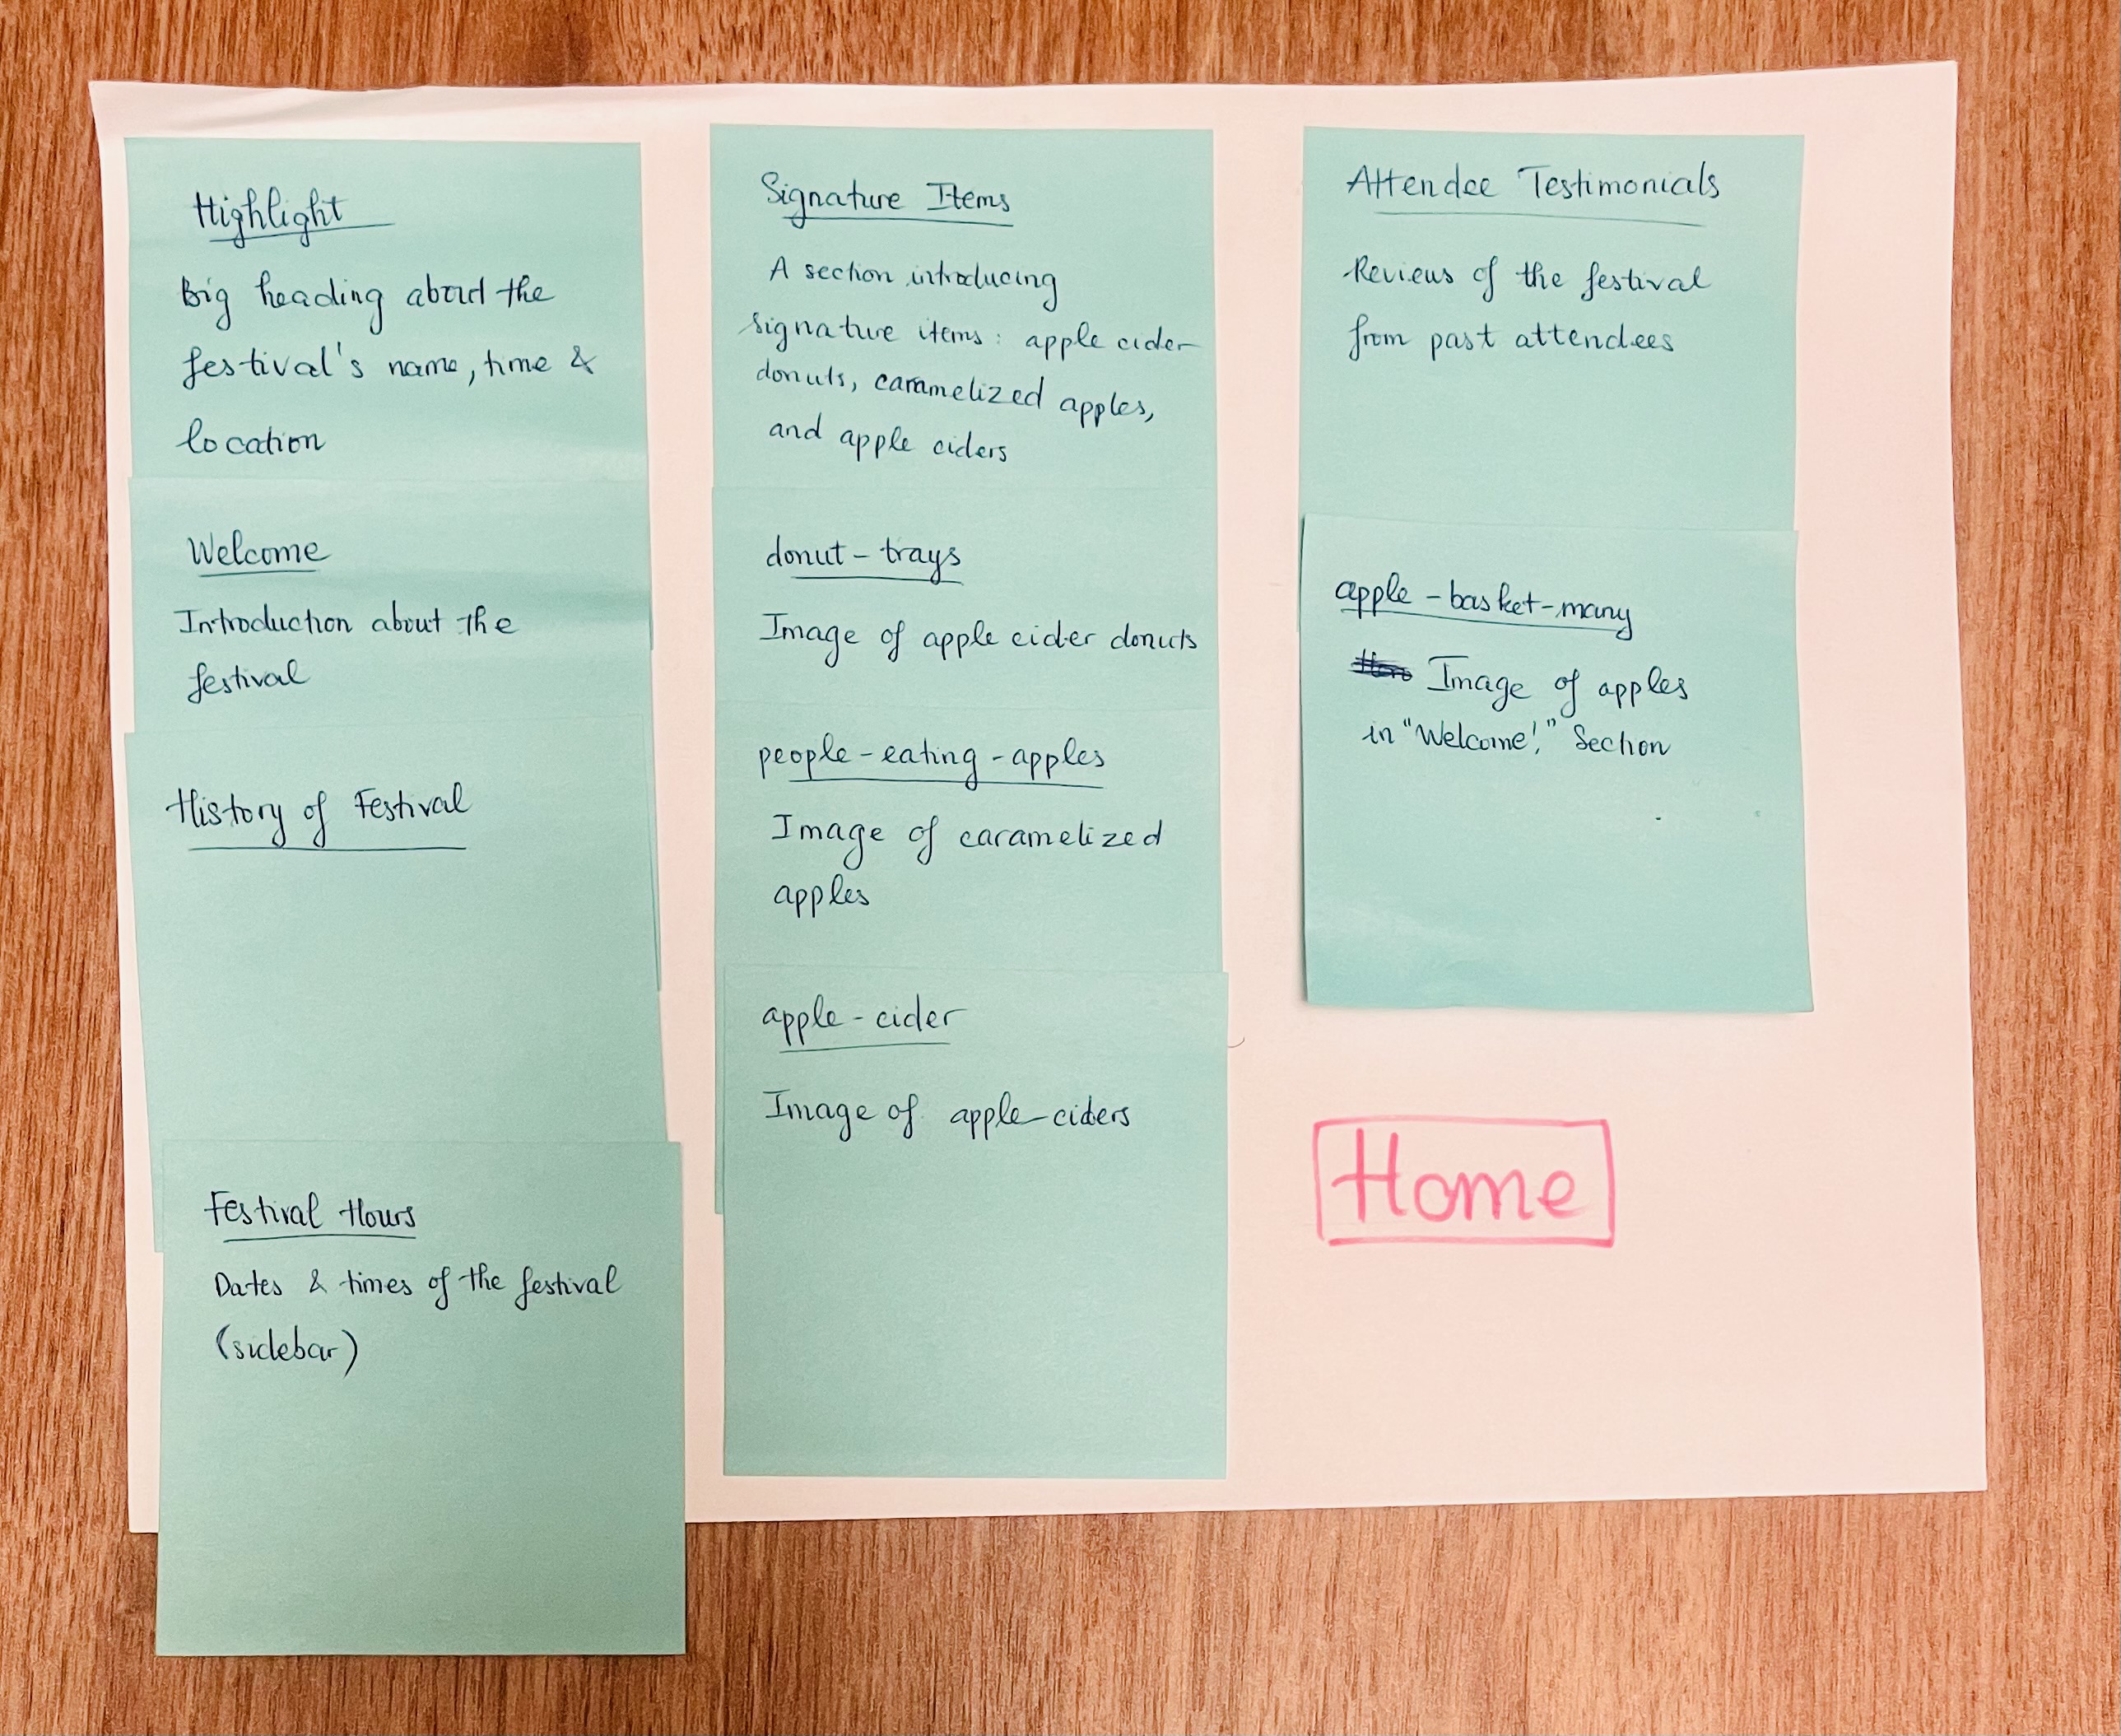 Highlight
Big heading about the
festival's name, time &
location
Welcome
Introduction about the
festival
History of Festival
Festival Hours
Dates & times of the festival
(sidebar)
Signature Items
A section introducing
signature items: apple cider
donuts, caramelized apples,
and apple ciders
donut-trays
Image of apple cider donuts
people-eating-apples
Image of caramelized
apples
apple-cider
Image of apple-ciders
Attendee Testimonials
Reviews of the festival
from past attendees
apple-basket-many
Image of apples
in "Welcome!" Section
Home